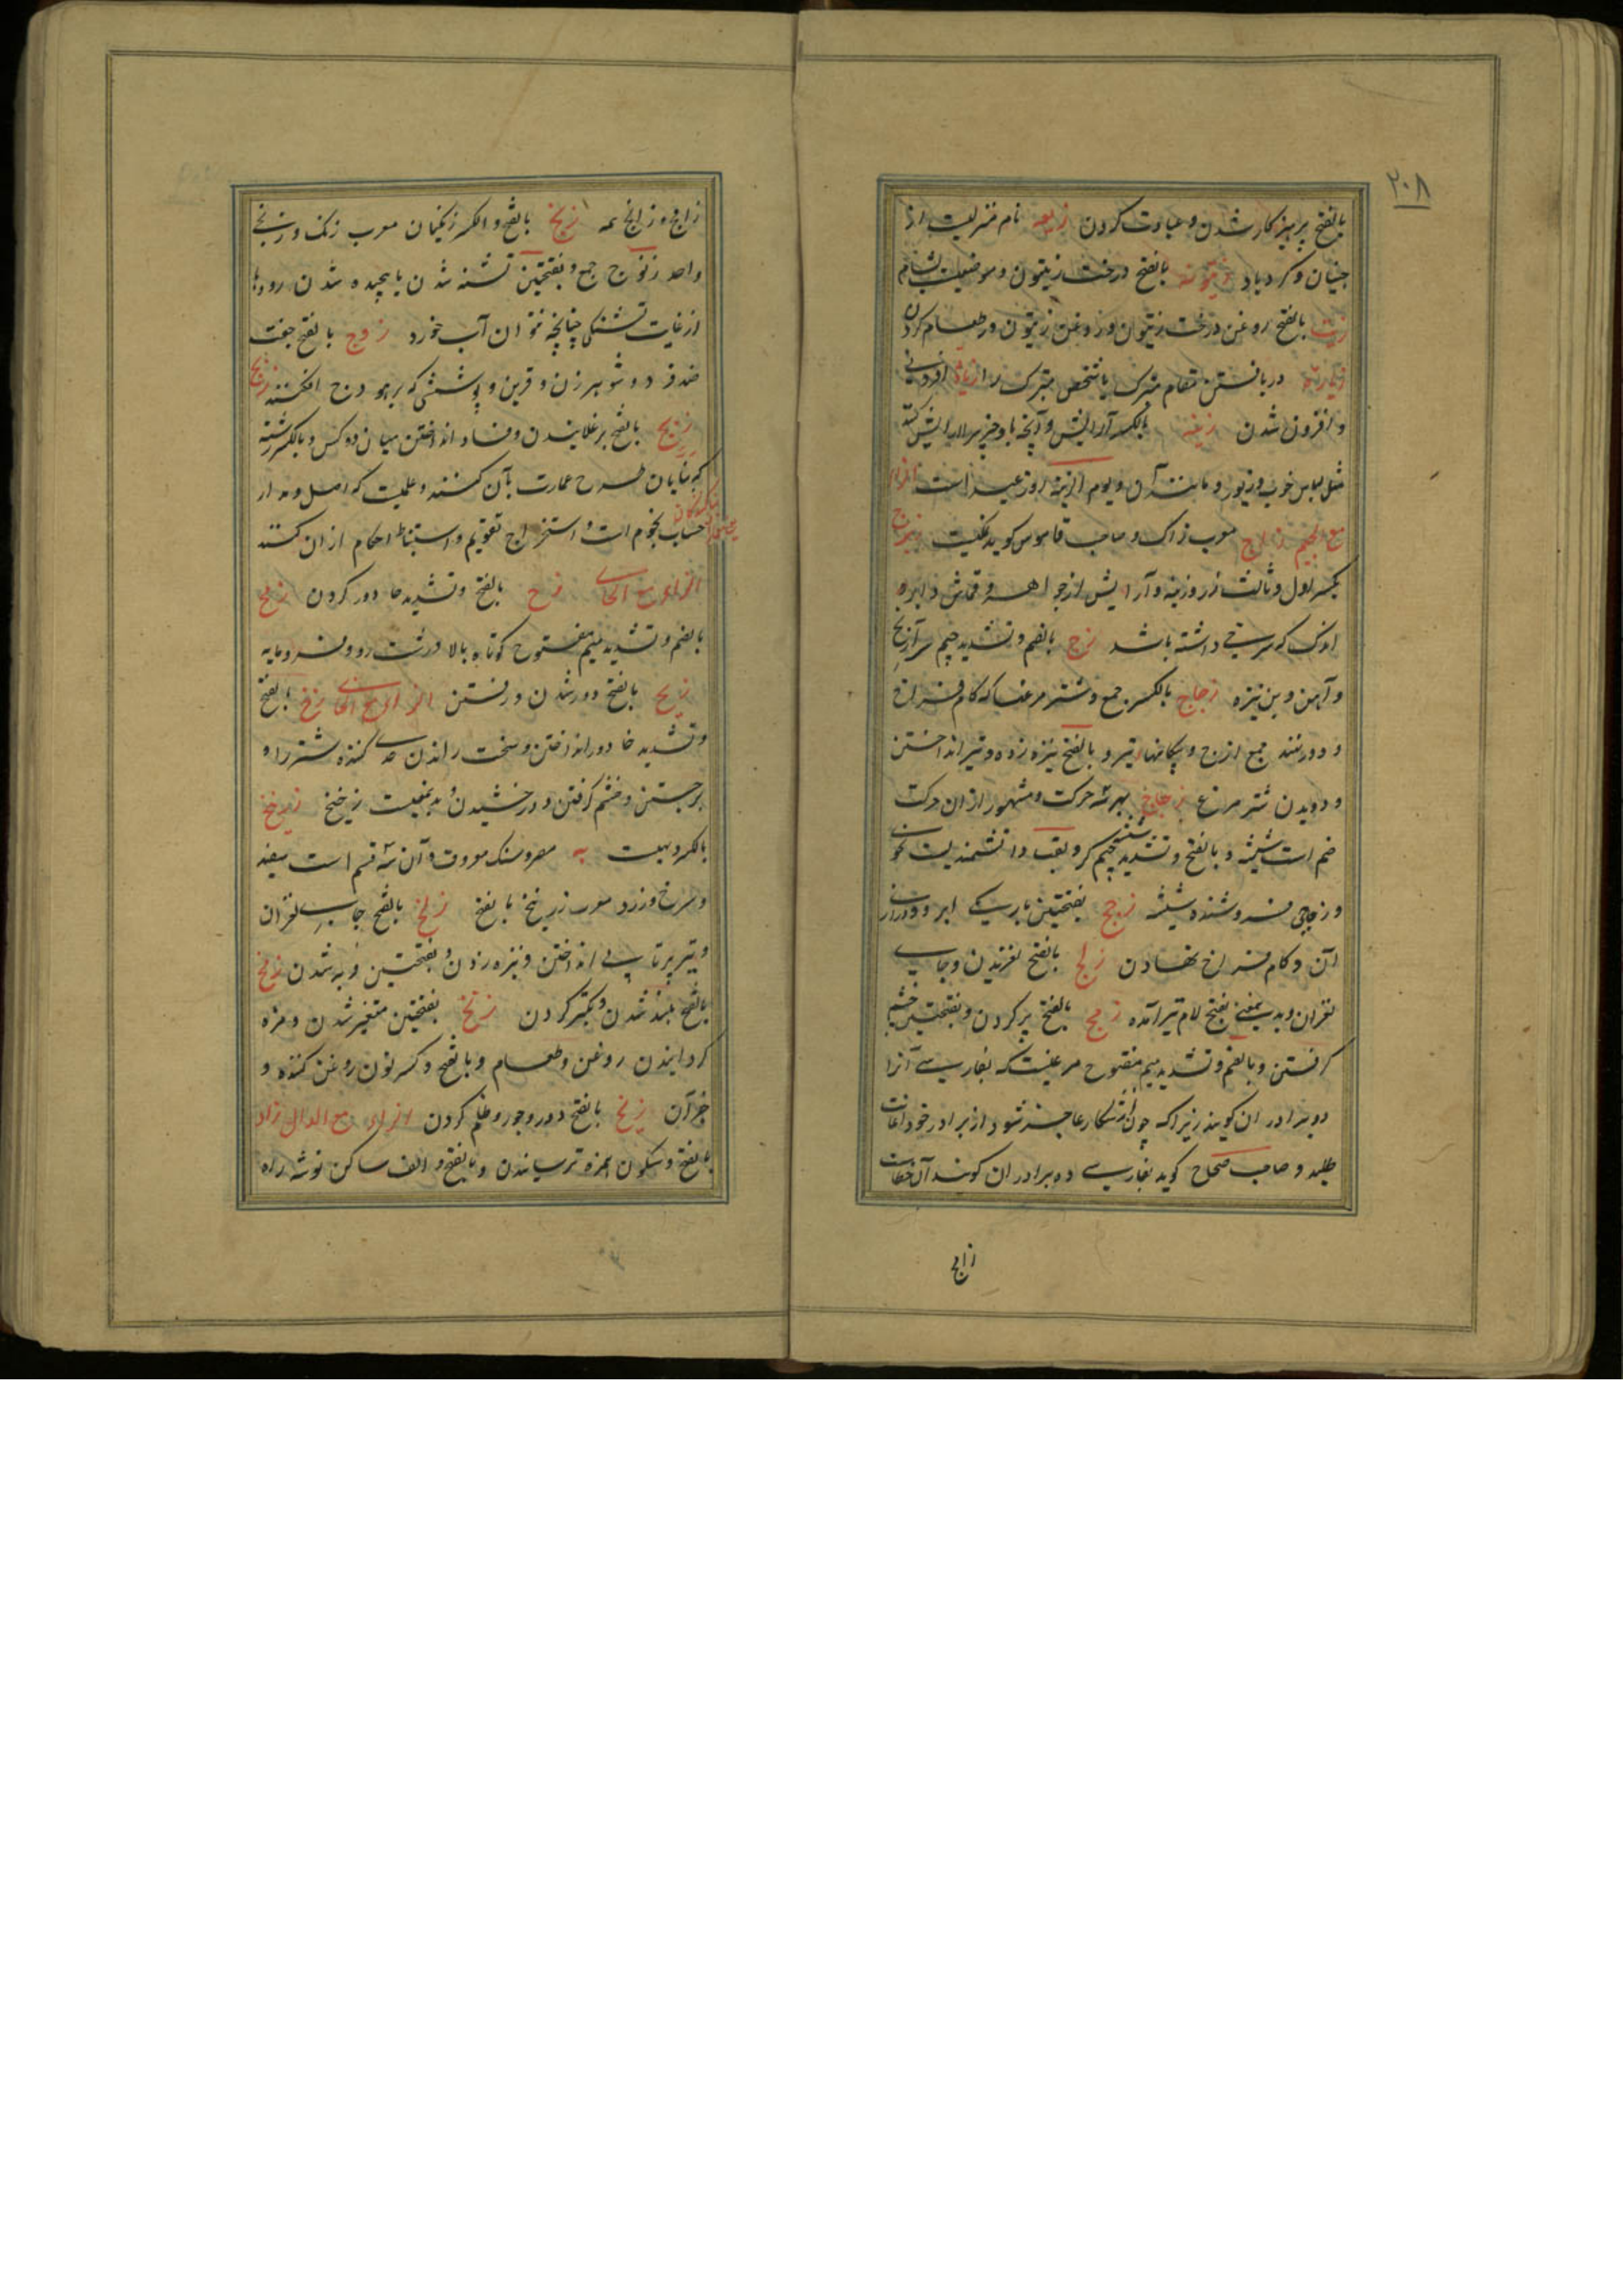 ۲۰۸
بالفتح پرهیزکار شدن و عبادت کردن زوبعه نام منزلیست از
جنیان و کردباد زیتونه بالفتح درخت زیتون و موضعیست بشام
زیت بالفتح روغن درخت زیتون و روغن زیتون در طعام کردن
زیارت دریافتن مقام متبرک یا شخص متبرک را زیاده افزونی
و افزون شدن زینه بالکسر آرایش و آنچه باو چیزیرا آرایش کنند
مثل لباس خوب و زیور و مانند آن و یوم الزینه روز عید است الزاء
مع الجیم زاج معرب زاک و صاحب قاموس کوید نمکیست زبرج
بکسر اول و ثالث زر و زینه و آرایش از جواهر و قماش و ابر و
اندک که سرخی داشته باشد زج بالضم و تشدید جیم سر آرنج
و آهن و بن نیزه زجاج بالکسر جمع و شتر مرغها که کام فراخ
و دور نهند جمع ازج و پیکانهای تیر و بالفتح نیزه زدن و تیر انداختن
و دویدن شتر مرغ زجاج بهر سه حرکت و مشهور از ان حرکت
ضم است شیشه و بالفتح و تشدید جیم شیشه کر و لقب دانشمندیست نحوی
و زجاجی فروشنده شیشه زجج بفتحتین باریکی ابرو و درازی
آن و کام فراخ نهادن زلج بالفتح لغزیدن و جای
لغزان و بدین معنی بفتح لام نیز آمده زمج بالفتح پر کردن و بفتحتین خشم
کرفتن و بالضم و تشدید میم مفتوح مرغیست که بفارسی آنرا
دو برادران کویند زیرا که چون از شکار عاجز شود از برادر خود اعانت
طلبد و صاحب صحاح کوید بفارسی ده برادران کویند آن خطاست
زامج
زامج و زامج همه زنج بالفتح و الکسر زنکیان معرب زنک و زنجی
واحد زنوج جمع و بفتحتین تشنه شدن یا پیچیده شدن رودها
از غایت تشنکی چنانچه نتوان آب خورد زوج بالفتح جفت
ضد فرد و شوهر زن و قرین و پوششی که بر هودج افکنند
زیج بالفتح برغلانیدن و فساد انداختن میان دو کس و بالکسر رشته
که بنایان طرح عمارت بآن کشند و علمیست که اصل و مدار
حساب نجوم است و استخراج تقویم و استنباط احکام از ان کنند
الزاء مع الحاء زح بالفتح و تشدید حا دور کردن زمح
بالضم و تشدید میم مفتوح کوتاه بالا و زشت رو و فرومایه
زیح بالفتح دور شدن و رفتن الزاء مع الخاء زخ بالفتح
و تشدید خا دور انداختن و سخت راندن حدی کننده شتر را و
برجستن و خشم کرفتن و درخشیدن و بدینمعنیست زخیخ زرنیخ
بالکسر دهیست به مصر و سنک معروف و آن سه قسم است سفید
و سرخ و زرد معرب زرنیخ بالفتح زلخ بالفتح جای لغزان
و تیر پرتاب انداختن و نیزه زدن و بفتحتین فربه شدن زمخ
بالفتح بلند شدن و تکبر کردن زنخ بفتحتین متغیر شدن و مزه
کردانیدن روغن و طعام و بالفتح و کسر نون روغن کنده و
جز آن زیخ بالفتح دور و جور و ظلم کردن الزاء مع الدال زاد
بالفتح و سکون همزه ترسانیدن و بالفتح و الف ساکن توشه راه